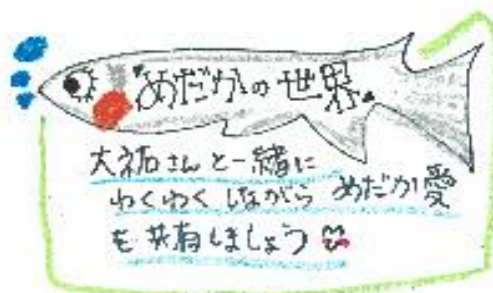 "めだかの世界"
大祐さんと一緒に
わくわくしながら めだか愛
を共有しましょう